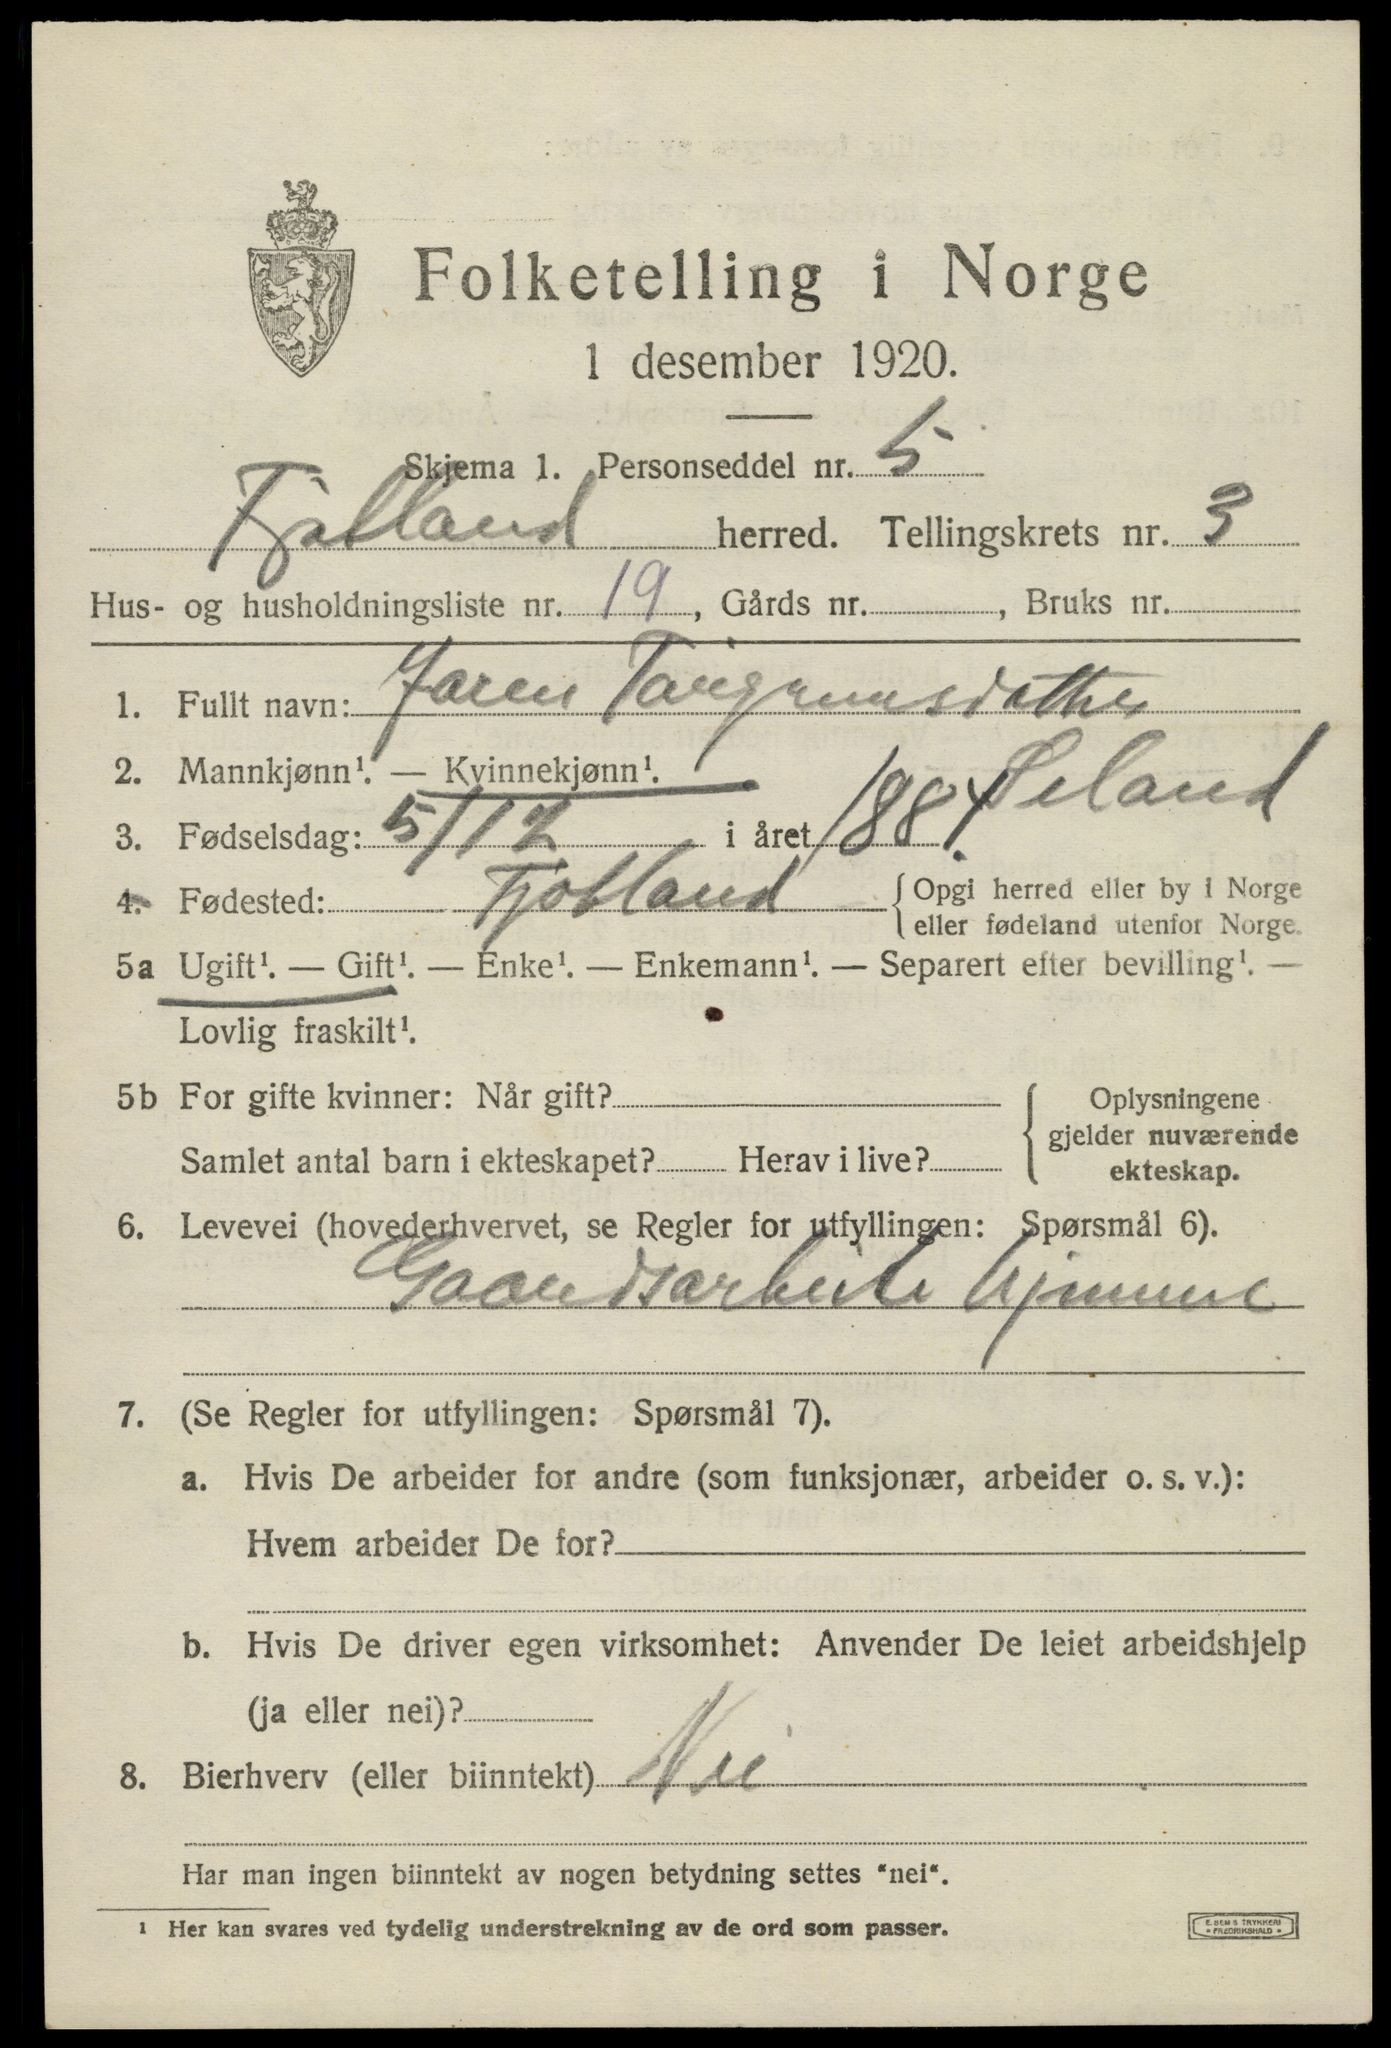 Folketelling i Norge
1 desember 1920.
Skjema 1. Personseddel nr. 5
Fjotland herred. Tellingskrets nr. 3
Hus- og husholdningsliste nr. 19, Gårds nr. , Bruks nr.
1. Fullt navn:
2. Mannkjønn¹. — Kvinnekjønn¹. Øiland
3. Fødselsdag: 5/12 i året 1884
4. Fødested: Fjotland { Opgi herred eller by i Norge
eller fødeland utenfor Norge.
5a Ugift¹. — Gift¹. — Enke¹. — Enkemann¹. — Separert efter bevilling¹. —
Lovlig fraskilt¹.
5b For gifte kvinner: Når gift? Oplysningene
gjelder nuværende
Samlet antal barn i ekteskapet? Herav i live? ekteskap.
6. Levevei (hovederhvervet, se Regler for utfyllingen: Spørsmål 6).
Gaardsarbeide hjemme
7. (Se Regler for utfyllingen: Spørsmål 7).
a. Hvis De arbeider for andre (som funksjonær, arbeider o. s. v.):
Hvem arbeider De for?
b. Hvis De driver egen virksomhet: Anvender De leiet arbeidshjelp
(ja eller nei)?
8. Bierhverv (eller biinntekt) Nei
Har man ingen biinntekt av nogen betydning settes "nei".
¹ Her kan svares ved tydelig understrekning av de ord som passer.
E. SEM'S TRYKKERI
FREDRIKSHALD